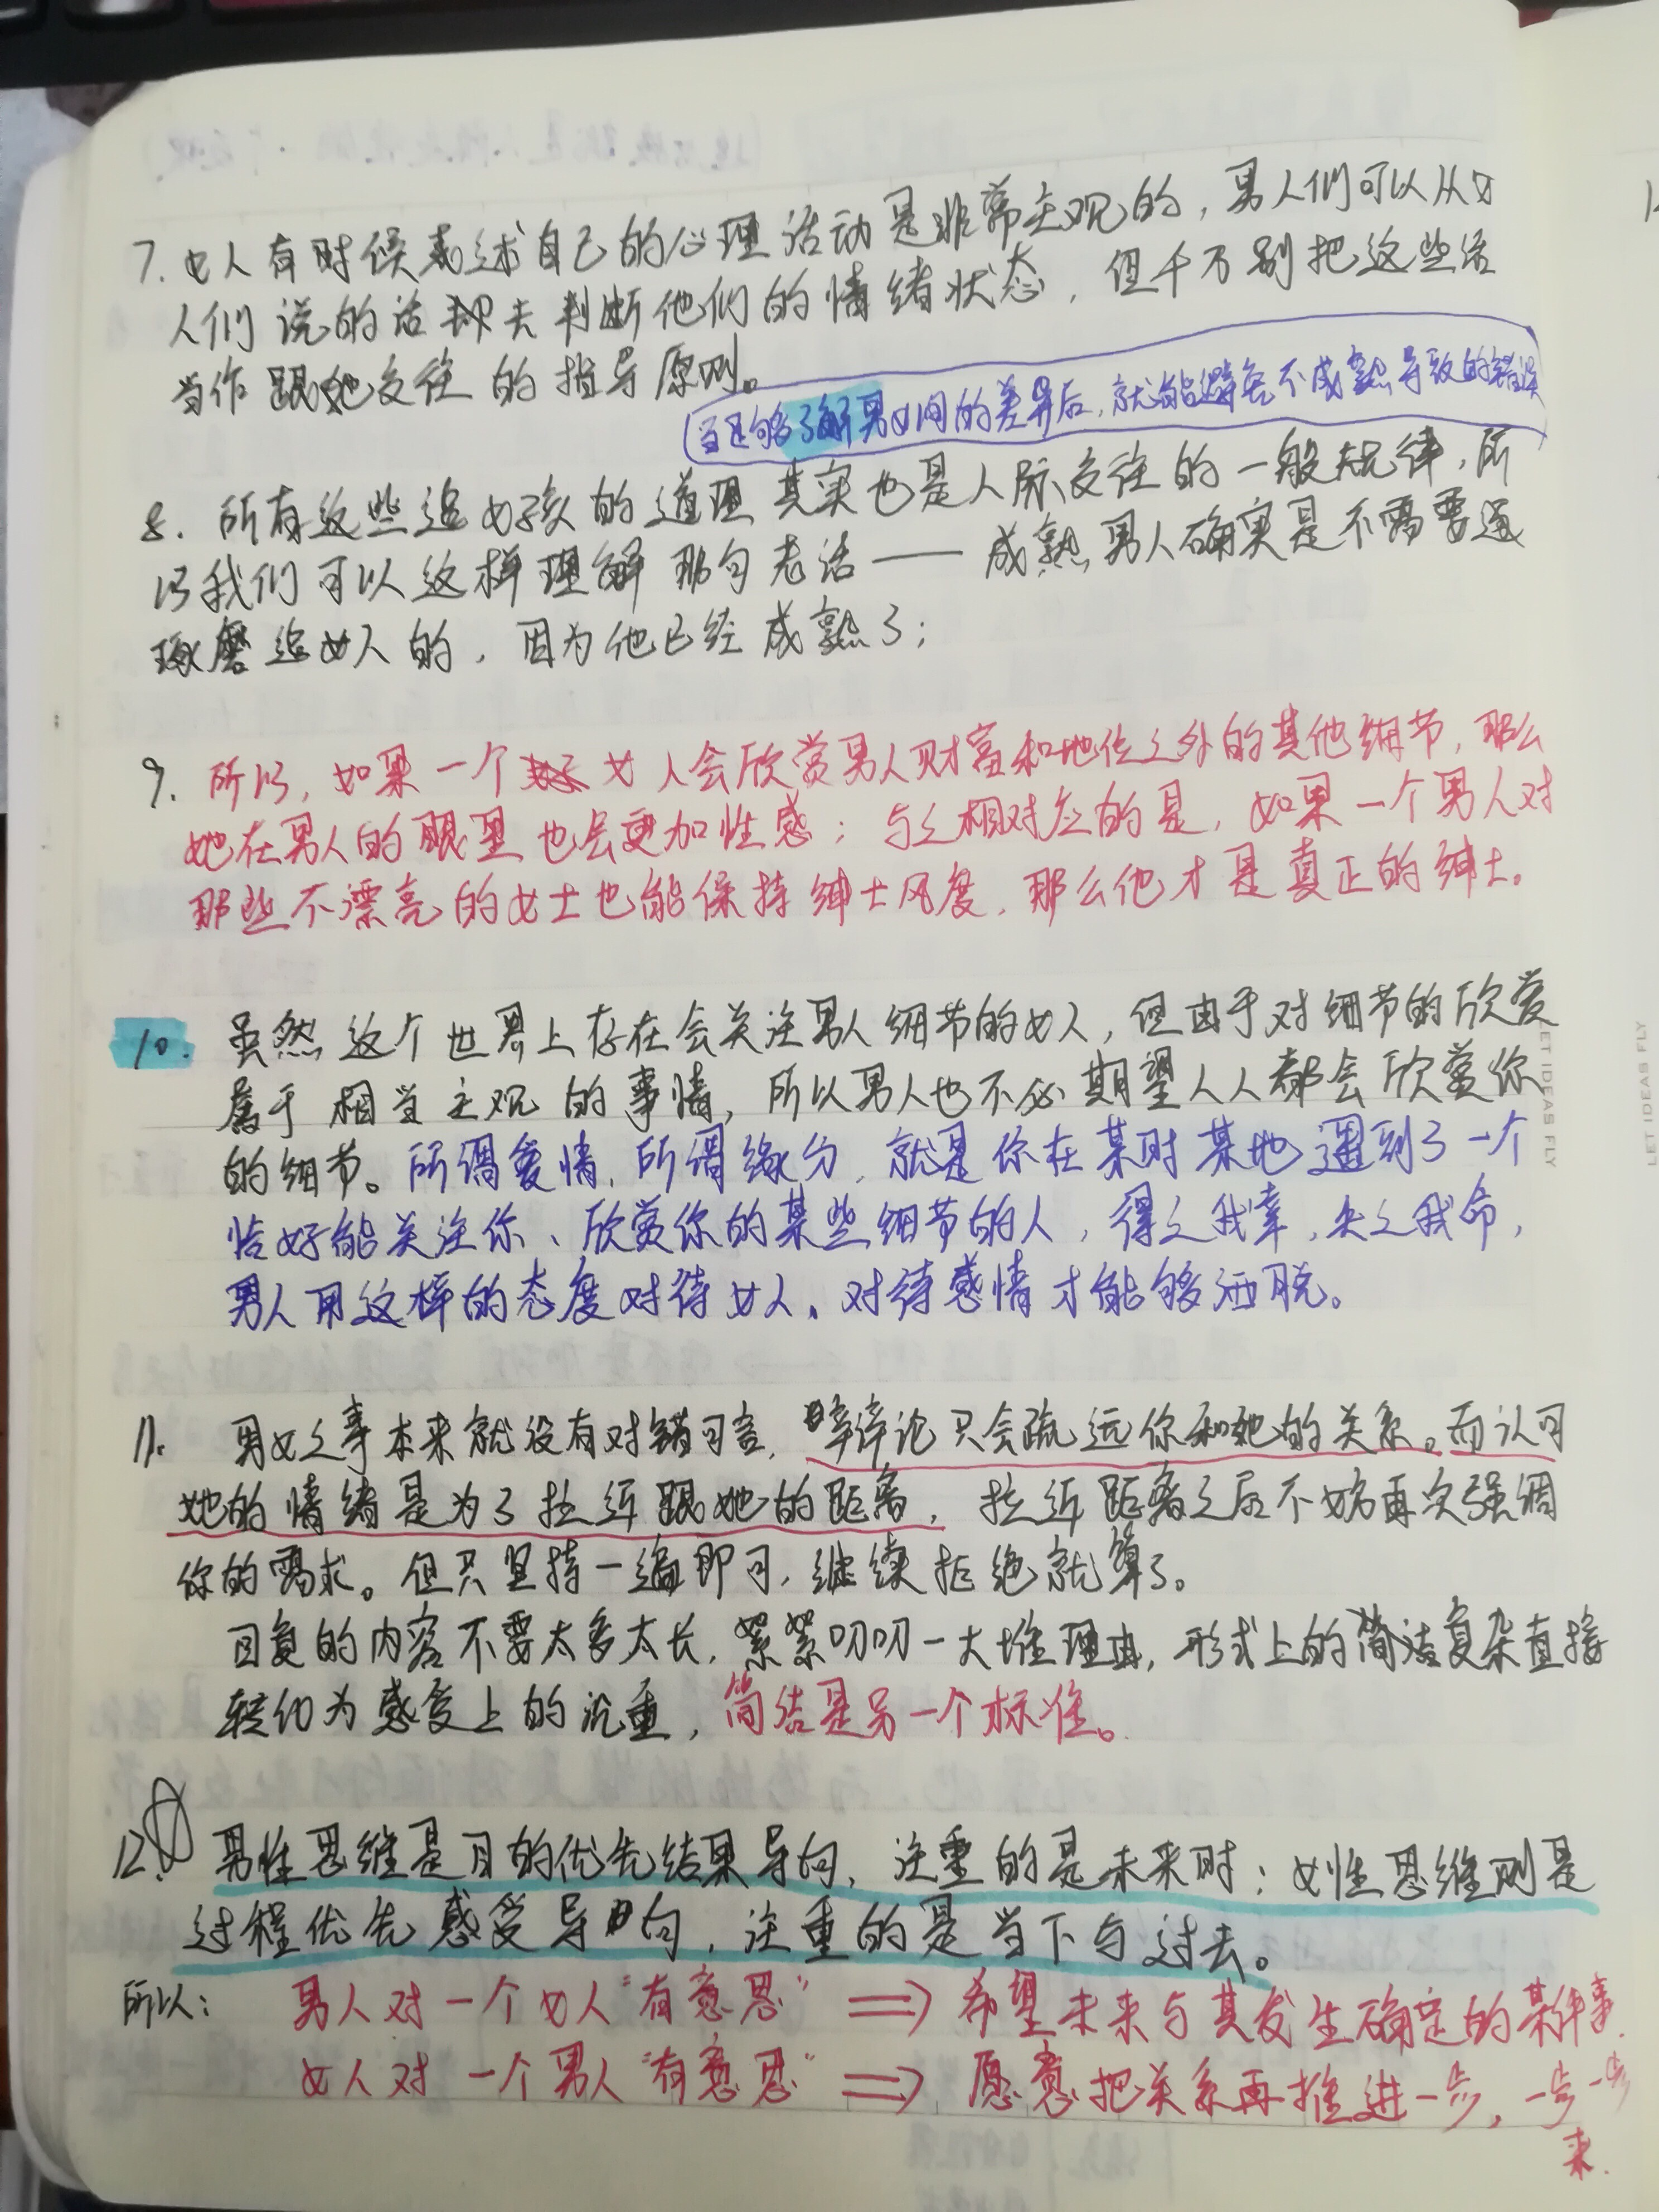 7. 女人有时候表述自己的心理活动是非常主观的，男人们可以从女
人们说的话去判断他们的情绪状态，但千万别把这些话
当作跟她交往的指导原则。
当足够了解男女间的差异后，就能避免不成熟导致的错误
8. 所有这些追女孩的道理其实也是人际交往的一般规律，所
以我们可以这样理解那句老话——成熟男人确实是不需要遥
琢磨追女人的，因为他已经成熟了；
9. 所以，如果一个女人会欣赏男人财富和地位之外的其他细节，那么
她在男人的眼里也会更加性感；与之相对应的是，如果一个男人对
那些不漂亮的女士也能保持绅士风度，那么他才是真正的绅士。
10. 虽然这个世界上存在会关注男人细节的女人，但由于对细节的欣赏
属于相当主观的事情，所以男人也不必期望人人都会欣赏你
的细节。所谓爱情，所谓缘分，就是你在某时某地遇到了一个
恰好能关注你、欣赏你的某些细节的人，得之我幸，失之我命，
男人用这样的态度对待女人、对待感情才能够洒脱。
11. 男女之事本来就没有对错可言，争辩论只会疏远你和她的关系。而认可
她的情绪是为了拉近跟她的距离，拉近距离之后不妨再次强调
你的需求。但只坚持一遍即可，继续拒绝就算了。
回复的内容不要太多太长，絮絮叨叨一大堆理由，形式上的简洁复杂直接
转化为感受上的沉重，简洁是另一个标准。
12. 男性思维是目的优先结果导向，注重的是未来时；女性思维则是
过程优先感受导向，注重的是当下与过去。
所以： 男人对一个女人“有意思” ⟹ 希望未来与其发生确定的某件事.
女人对一个男人“有意思” ⟹ 愿意把关系再推进一步，一步一步
来.
LET IDEAS FLY
LET IDEAS FLY